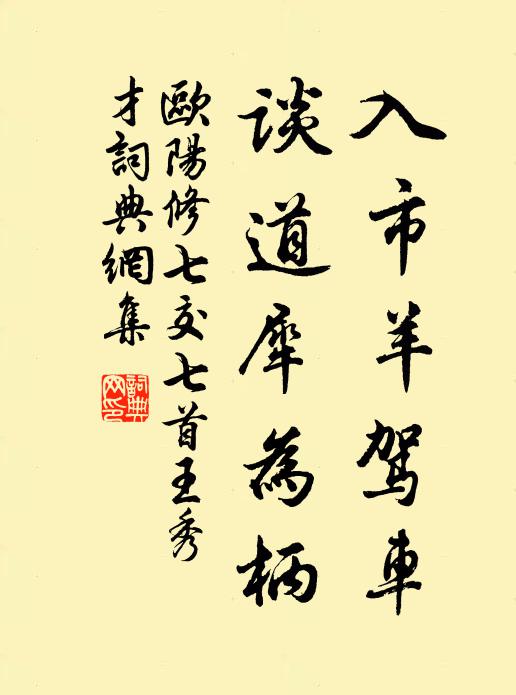 入市羊駕車
談道犀為柄
歐陽修七交七首王秀
才詞典網集
詞典網印